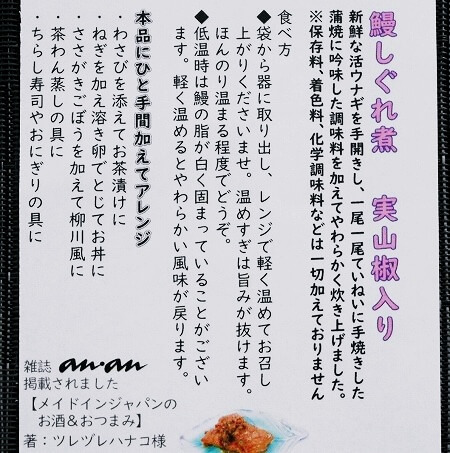 鰻しぐれ煮　実山椒入り
新鮮な活ウナギを手開きし、一尾一尾ていねいに手焼きした
蒲焼に吟味した調味料を加えてやわらかく炊き上げました。
※保存料、着色料、化学調味料などは一切加えておりません
食べ方
◆袋から器に取り出し、レンジで軽く温めてお召し
上がりくださいませ。温めすぎは旨みが抜けます。
ほんのり温まる程度でどうぞ。
◆低温時は鰻の脂が白く固まっていることがござい
ます。軽く温めるとやわらかい風味が戻ります。
本品にひと手間加えてアレンジ
・わさびを添えてお茶漬けに
・ねぎを加え溶き卵でとじてお丼に
・ささがきごぼうを加えて柳川風に
・茶わん蒸しの具に
・ちらし寿司やおにぎりの具に
雑誌 an・an
掲載されました
【メイドインジャパンの
お酒＆おつまみ】
著：ツレヅレハナコ様